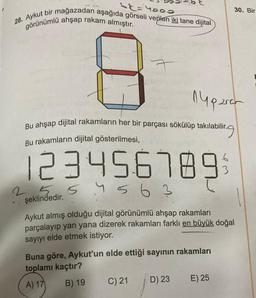 4t = 4000
30. Bir
28. Aykut bir mağazadan aşağıda görseli verilen iki tane dijital
görünümlü ahşap rakam almıştır.
14 parça
Bu ahşap dijital rakamların her bir parçası sökülüp takılabilir.
Bu rakamların dijital gösterilmesi,
1 2 3 4 5 6 7 8 9
2 5 5 4 5 6 3 6
şeklindedir.
Aykut almış olduğu dijital görünümlü ahşap rakamları
parçalayıp yan yana dizerek rakamları farklı en büyük doğal
sayıyı elde etmek istiyor.
Buna göre, Aykut'un elde ettiği sayının rakamları
toplamı kaçtır?
A) 17 B) 19 C) 21 D) 23 E) 25